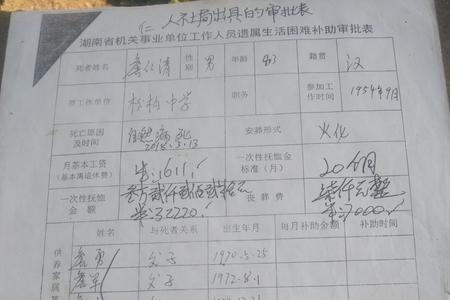 人社局出具的审批表
湖南省机关事业单位工作人员遗属生活困难补助审批表
死者姓名 仁清 性别 男 年龄 83 籍贯 汉
原工作单位 松柏中学 职务 参加工作时间 1954年9月
死亡原因及时间 自然病死 2018.5.13 安葬形式 火化
月基本工资（基本离退休费） 1611 一次性抚恤金标准（月） 20个月
一次性抚恤金金额 叁万贰仟贰佰贰拾元 32220 丧葬费 柒仟元整 7000
供养家属 姓名 与死者关系 出生年月 每月补助金额 补助时间
勇 父子 1970.5.25
军 父子 1972.8.1